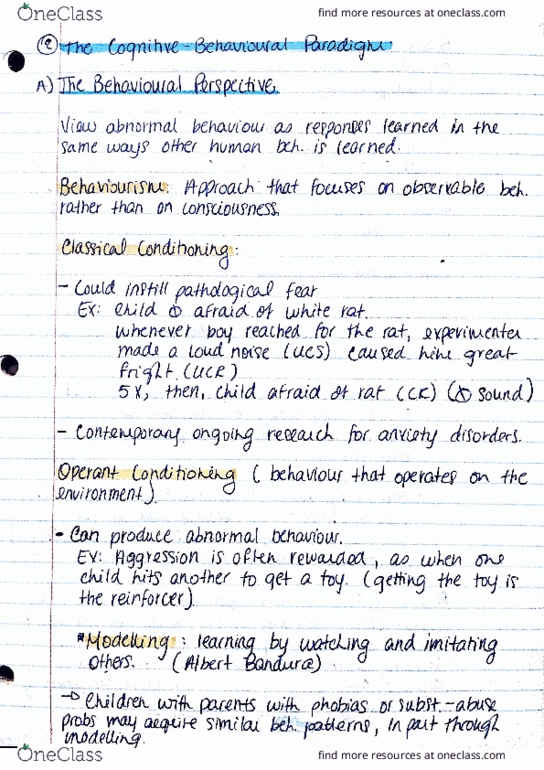 OneClass
find more resources at oneclass.com
② The Cognitive-Behavioural Paradigm
A) The Behavioural Perspective
View abnormal behaviour as responses learned in the
same ways other human beh. is learned.
Behaviourism: Approach that focuses on observable beh.
rather than on consciousness.
Classical Conditioning:
- Could instill pathological fear
Ex: child afraid of white rat.
whenever boy reached for the rat, experimenter
made a loud noise (UCS) caused him great
fright (UCR)
5x, then, child afraid of rat (CR) (sound)
- Contemporary ongoing research for anxiety disorders.
Operant Conditioning (behaviour that operates on the
environment)
- Can produce abnormal behaviour.
Ex: Aggression is often rewarded, as when one
child hits another to get a toy. (getting the toy is
the reinforcer)
*Modelling: learning by watching and imitating
others. (Albert Bandura)
→ Children with parents with phobias or subst-abuse
probs may acquire similar beh. patterns, in part through
modelling.
OneClass
find more resources at oneclass.com